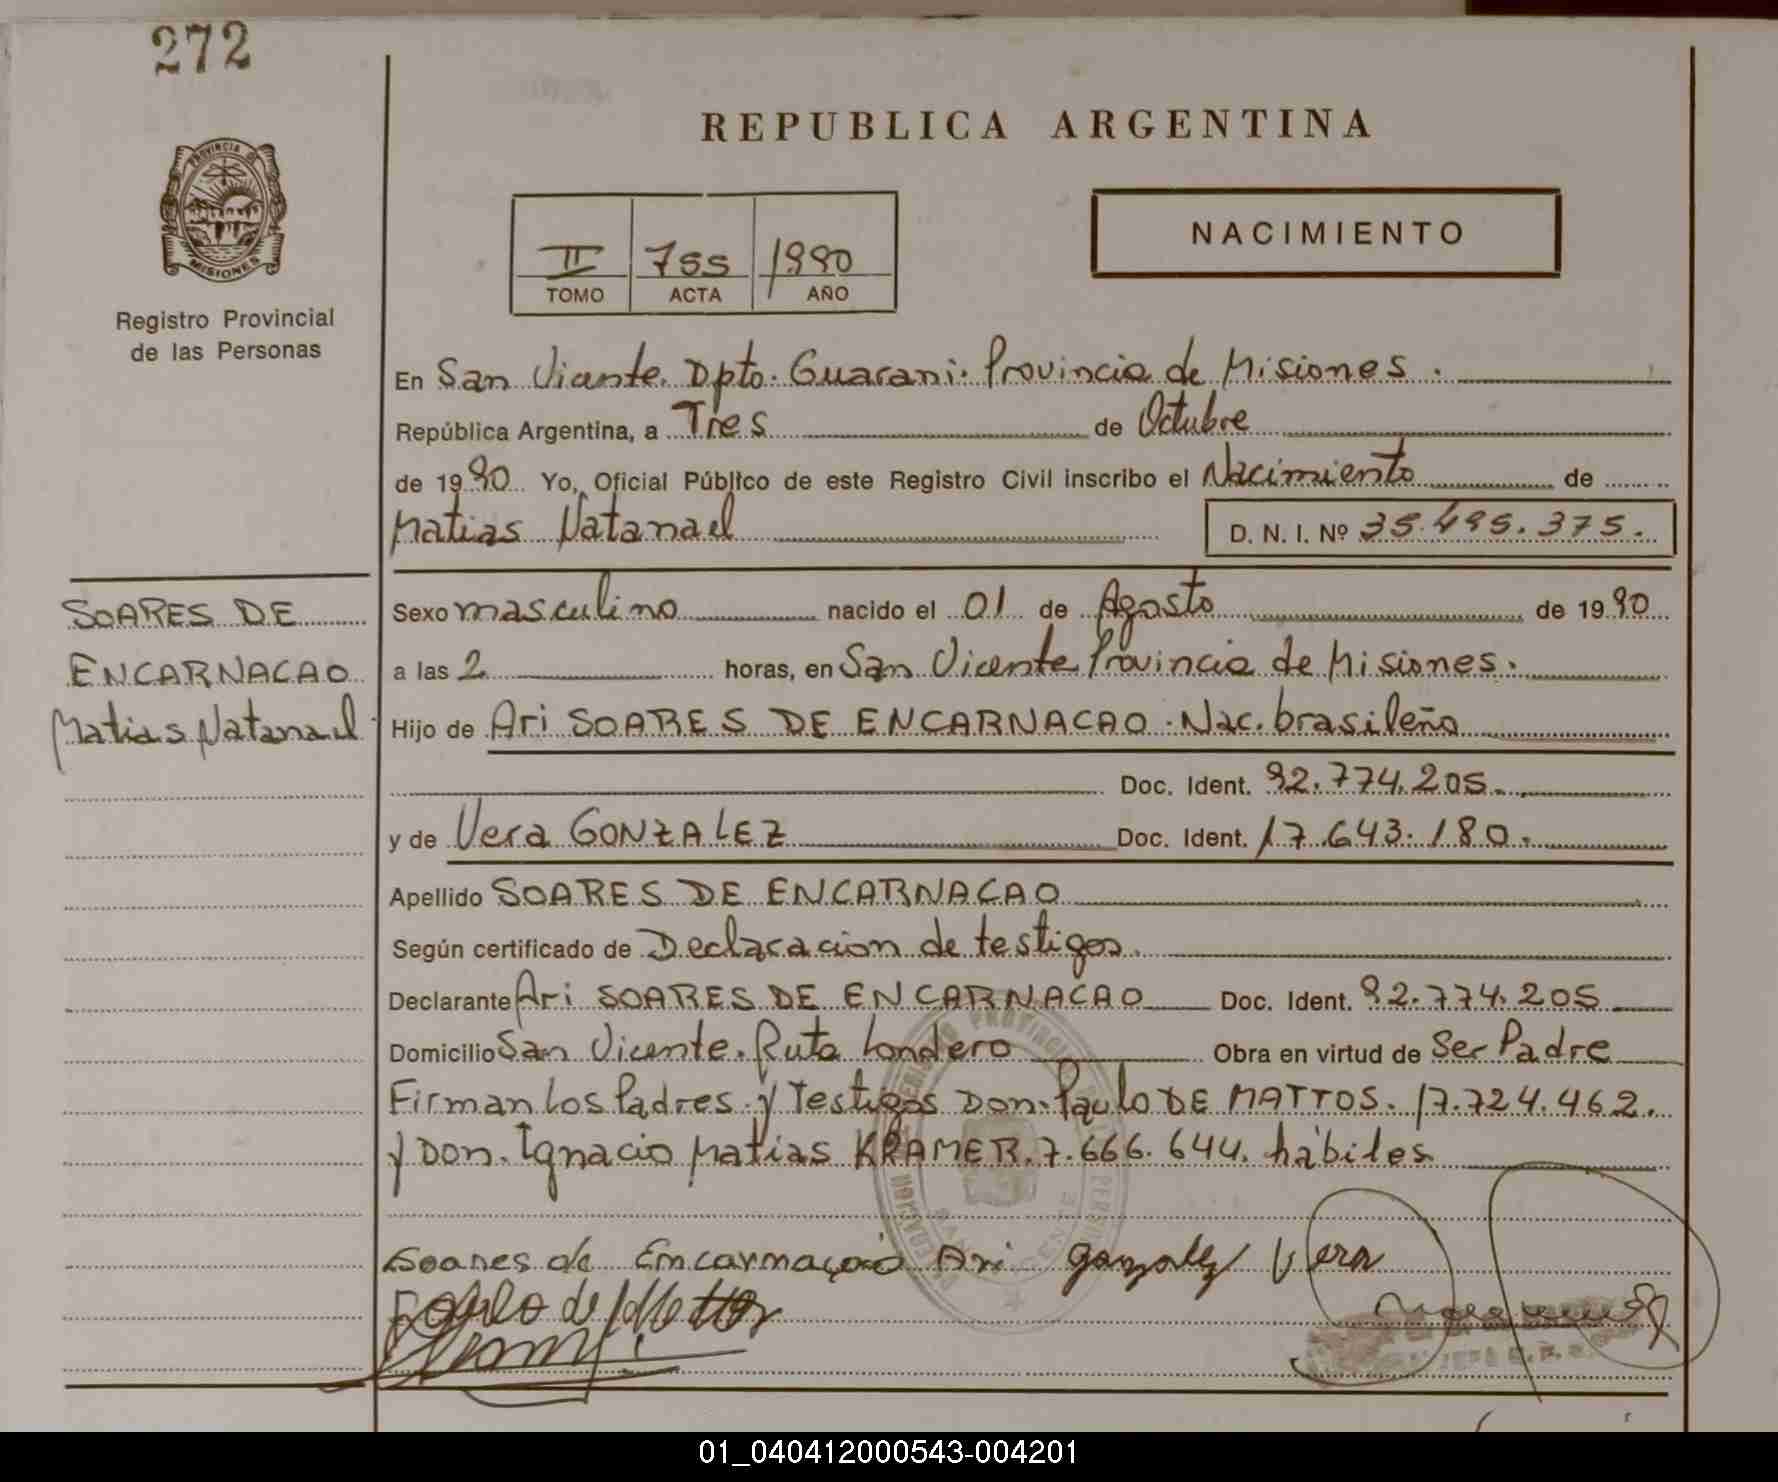 272
REPUBLICA ARGENTINA
PROVINCIA DE
MISIONES
Registro Provincial
de las Personas
II 755 1990
TOMO ACTA AÑO
NACIMIENTO
En San Vicente. Dpto. Guarani. Provincia de Misiones.
República Argentina, a Tres de Octubre
de 1990 Yo, Oficial Público de este Registro Civil inscribo el Nacimiento de
Matias Natanael D. N. I. Nº 35.495.375.
SOARES DE
ENCARNACAO
Matias Natanael
Sexo masculino nacido el 01 de Agosto de 1990
a las 2 horas, en San Vicente Provincia de Misiones.
Hijo de Ari SOARES DE ENCARNACAO. Nac. brasileño
Doc. Ident. 92.774.205.
y de Vera GONZALEZ Doc. Ident. 17.643.180.
Apellido SOARES DE ENCARNACAO
Según certificado de Declaracion de testigos.
Declarante Ari SOARES DE ENCARNACAO Doc. Ident. 92.774.205
Domicilio San Vicente. Ruta Londero Obra en virtud de Ser Padre
Firman los Padres y Testigos Don. Paulo DE MATTOS. 17.724.462.
y Don. Ignacio Matias KRAMER. 7.666.644. hábiles
Soares de Encarnaçaõ Ari Gonzalez Vera
de Mattos
01_040412000543-004201